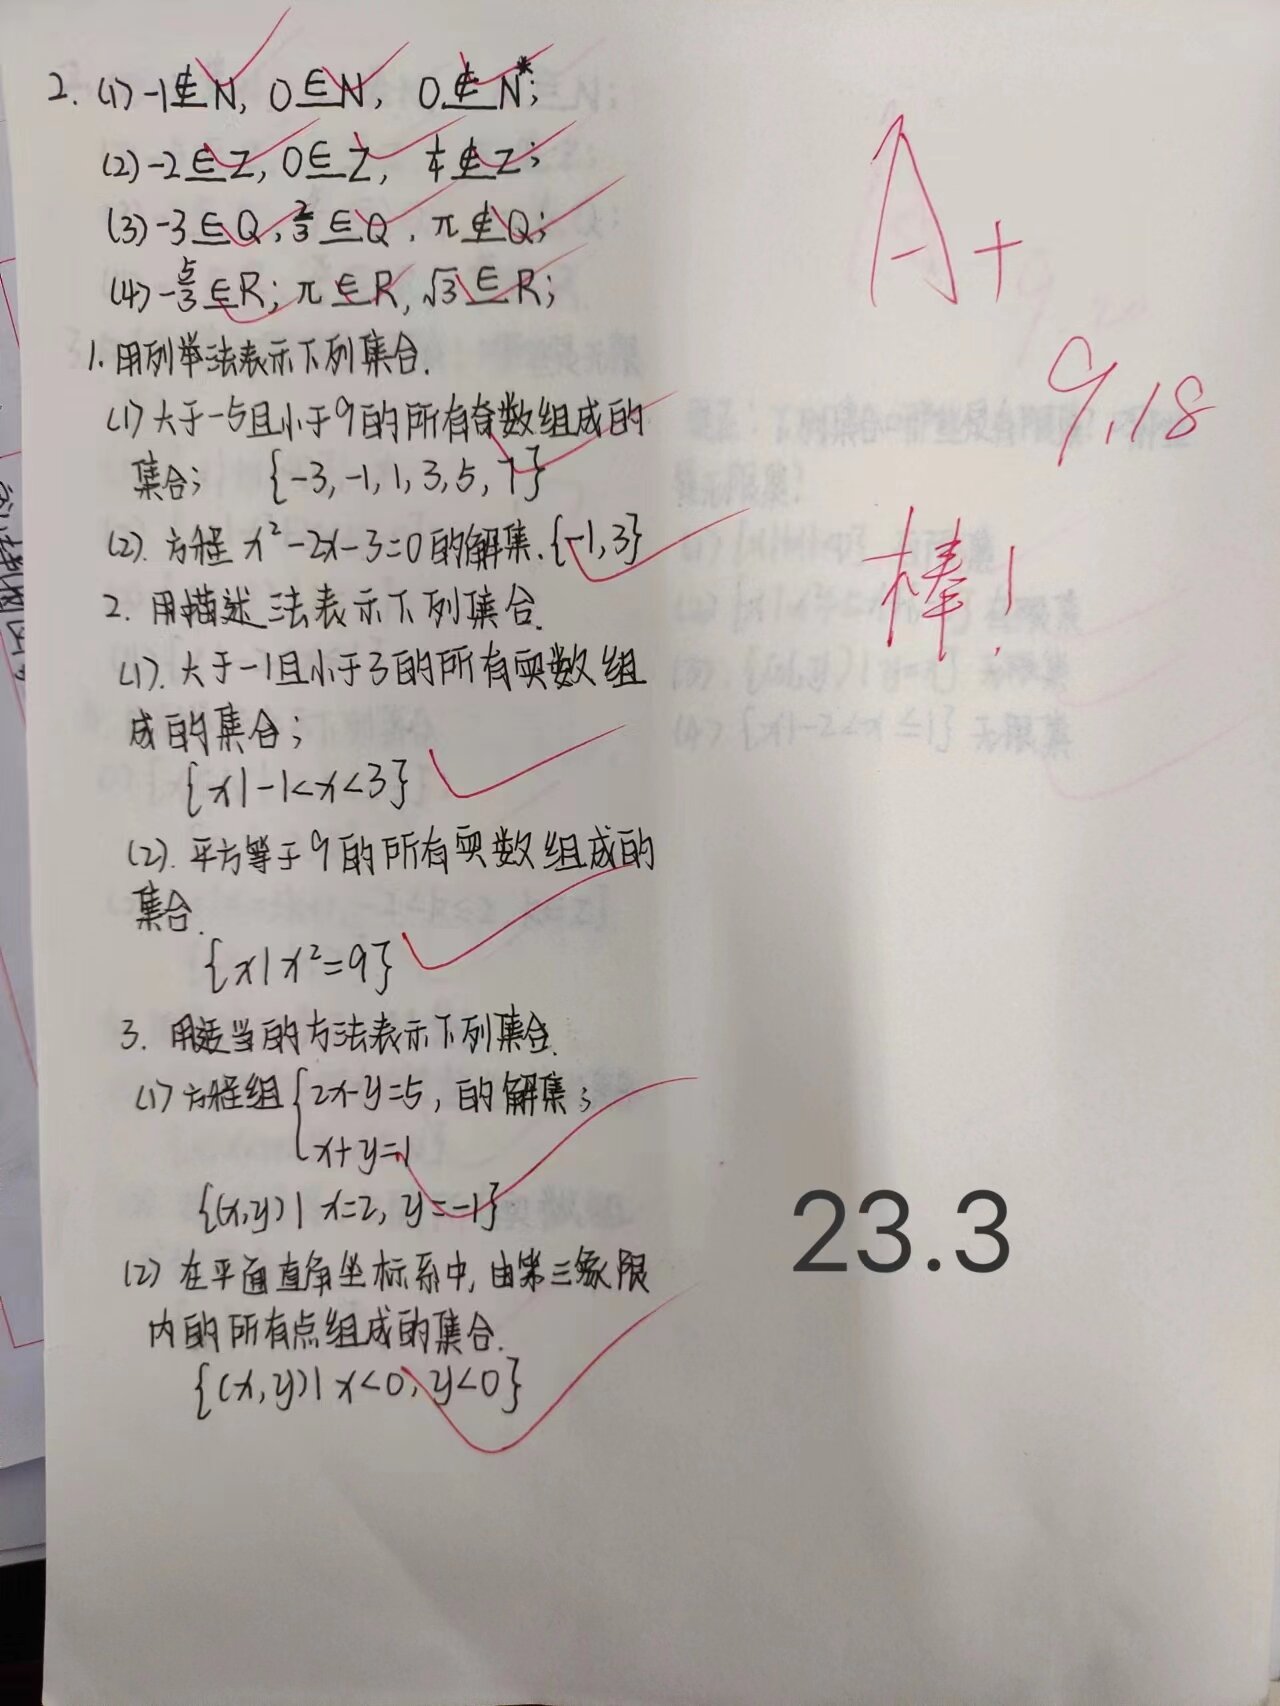 2. (1) -1∉N, 0∈N, 0∉N*;
(2) -2∈Z, 0∈Z, ∉Z;
(3) -3∈Q, 2/3∈Q, π∉Q;
(4) -5/3∈R; π∈R, √3∈R;
1. 用列举法表示下列集合.
(1) 大于-5且小于9的所有奇数组成的
集合; {-3, -1, 1, 3, 5, 7}
(2). 方程 x²-2x-3=0的解集. {-1, 3}
2. 用描述法表示下列集合.
(1). 大于-1且小于3的所有实数组
成的集合;
{x|-1<x<3}
(2). 平方等于9的所有实数组成的
集合.
{x|x²=9}
3. 用适当的方法表示下列集合.
(1) 方程组{2x-y=5, 的解集;
x+y=1
{(x,y)| x=2, y=-1}
(2) 在平面直角坐标系中, 由第三象限
内的所有点组成的集合.
{(x,y)| x<0, y<0}
A+
9.18
棒!
23.3